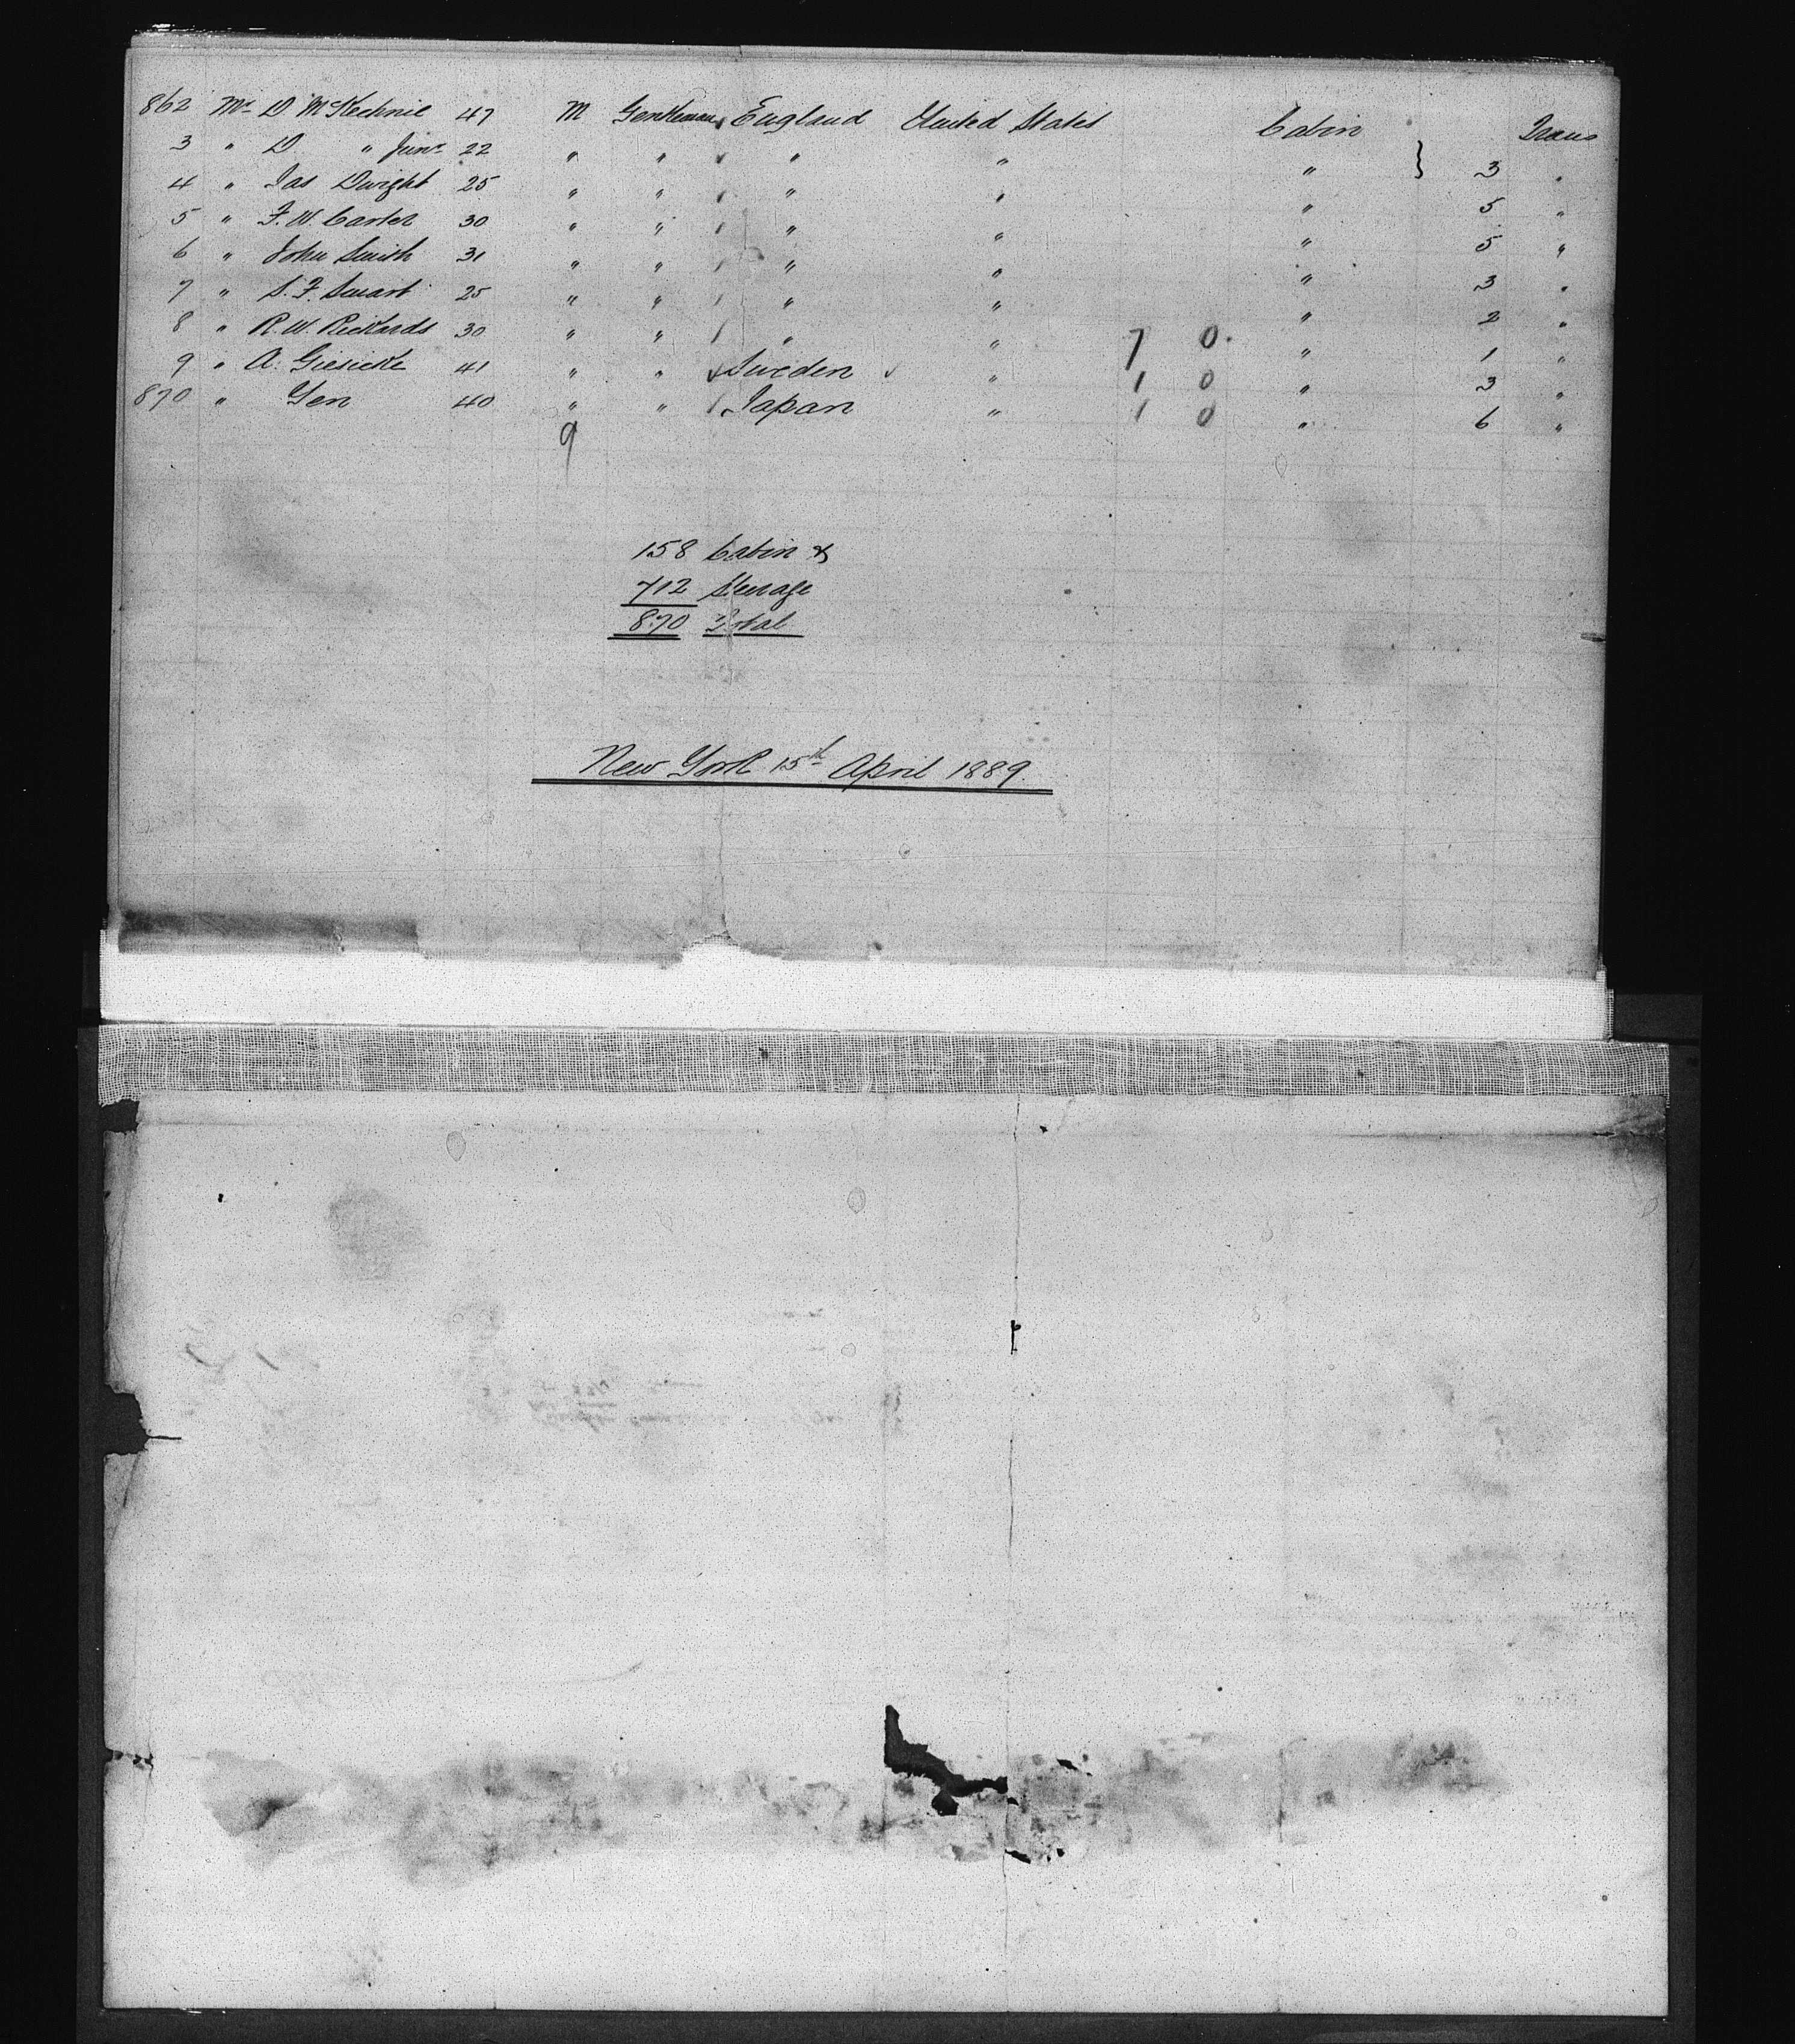 862 Mr D McKechnie 47 M Gentleman England United States Cabin Trans
3 " D " Junr 22 " " " " " 3 "
4 " Jas Dwight 25 " " " " " 5 "
5 " F. W. Carter 30 " " " " " 5 "
6 " John Smith 31 " " " " " 3 "
7 " S. F. Smart 25 " " " " " 2 "
8 " R. W. Rickards 30 " " " " 7 0 " 1 "
9 " A. Giesicke 41 " " Sweden " 1 0 " 3 "
870 " Yen 40 " " Japan " 1 0 " 6 "
9
158 Cabin &
712 Steerage
870 Total
New York 15th April 1889.